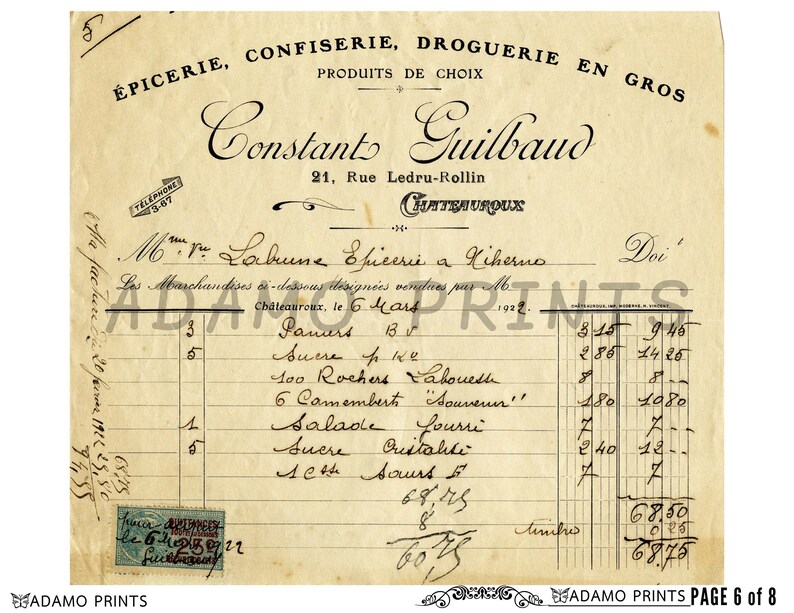 5
ÉPICERIE, CONFISERIE, DROGUERIE EN GROS
PRODUITS DE CHOIX
Constant Guilbaud
21, Rue Ledru-Rollin
TÉLÉPHONE
3-67
CHATEAUROUX
Mme Vve Labrune Epicerie a Niherne Doit
Les Marchandises ci-dessous désignées vendues par M
ADAMO PRINTS
Châteauroux, le 6 Mars 1922.
CHÂTEAUROUX, IMP. MODERNE, H. VINCENT.
3 Paniers B V 3 15 9 45
5 Sucre p Ko 2 85 14 25
100 Rochers Labouesse 8 8 --
6 Camemberts "Souvenir" 1 80 10 80
1 Salade fourré 7 7 --
5 Sucre Cristalisé 2 40 12 --
1 Csse Sours F 7 7
68,75 68.50
8 timbre 0 25
60,75 68,75
Ma facture du 20 février 1922 29,80
68,75
QUITTANCES
25c
pour acquit
le 6 1922
Guilbaud
ADAMO PRINTS
ADAMO PRINTS PAGE 6 of 8